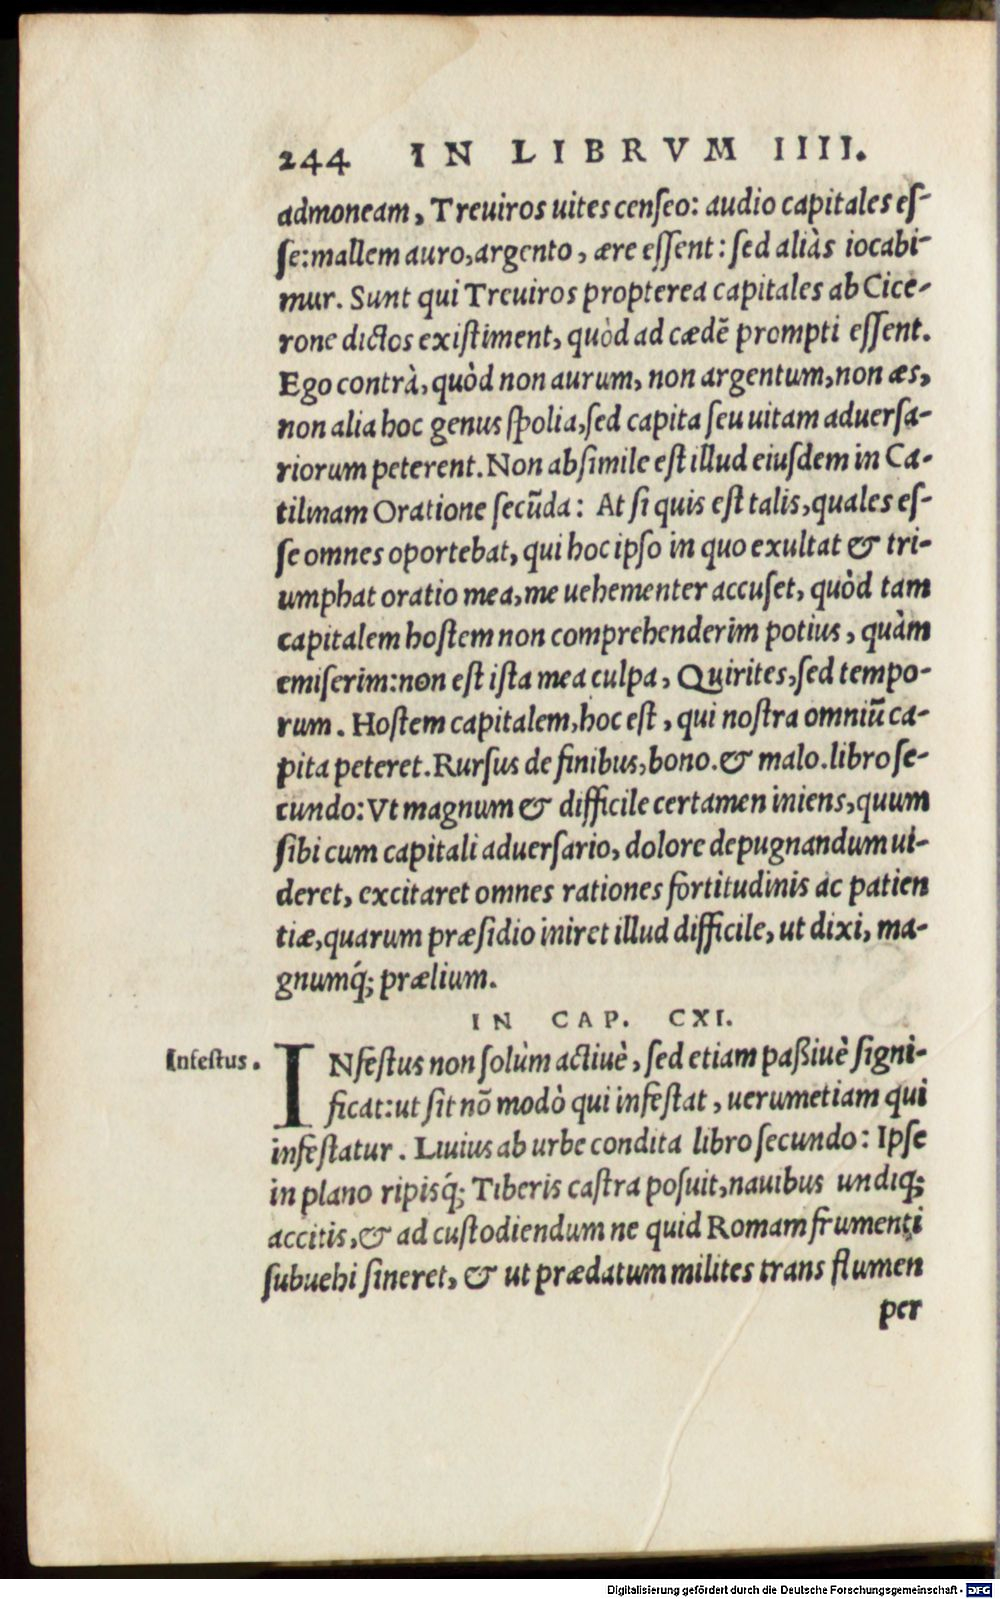 244 IN LIBRVM IIII.
admoneam, Treuiros uites censeo: audio capitales eſ-
ſe: mallem auro, argento, ære eſſent: ſed aliàs iocabi-
mur. Sunt qui Treuiros propterea capitales ab Cice-
rone dictos exiſtiment, quòd ad cædẽ prompti eſſent.
Ego contrà, quòd non aurum, non argentum, non æs,
non alia hoc genus ſpolia, ſed capita ſeu uitam aduerſa-
riorum peterent. Non abſimile eſt illud eiuſdem in Ca-
tilinam Oratione ſecũda: At ſi quis eſt talis, quales eſ-
ſe omnes oportebat, qui hoc ipſo in quo exultat & tri-
umphat oratio mea, me uehementer accuſet, quòd tam
capitalem hoſtem non comprehenderim potius, quàm
emiſerim: non eſt iſta mea culpa, Quirites, ſed tempo-
rum. Hoſtem capitalem, hoc eſt, qui noſtra omniũ ca-
pita peteret. Rurſus de finibus, bono. & malo. libro ſe-
cundo: Vt magnum & difficile certamen iniens, quum
ſibi cum capitali aduerſario, dolore depugnandum ui-
deret, excitaret omnes rationes fortitudinis ac patien
tiæ, quarum præſidio iniret illud difficile, ut dixi, ma-
gnumq́; prælium.
IN CAP. CXI.
Infeſtus. INfeſtus non ſolùm actiuè, ſed etiam paßiuè ſigni-
ficat: ut ſit nõ modò qui infeſtat, uerumetiam qui
infeſtatur. Liuius ab urbe condita libro ſecundo: Ipſe
in plano ripisq́; Tiberis caſtra poſuit, nauibus undiq;
accitis, & ad cuſtodiendum ne quid Romam frumenti
ſubuehi ſineret, & ut prædatum milites trans flumen
per
Digitalisierung gefördert durch die Deutsche Forschungsgemeinschaft - DFG